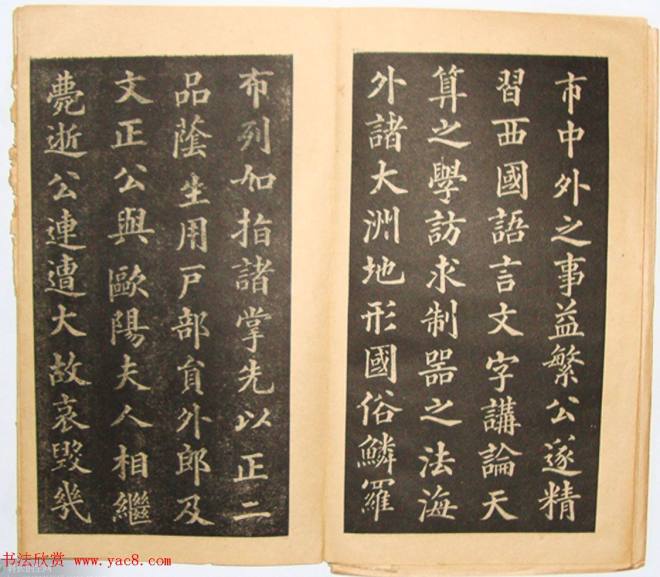 市中外之事益繁公遂精
習西國語言文字講論天
算之學訪求制器之法海
外諸大洲地形國俗鱗羅
布列如指諸掌先以正二
品蔭生用戶部員外郎及
文正公與歐陽夫人相繼
薨逝公連遭大故哀毀幾
书法欣赏 www.yac8.com